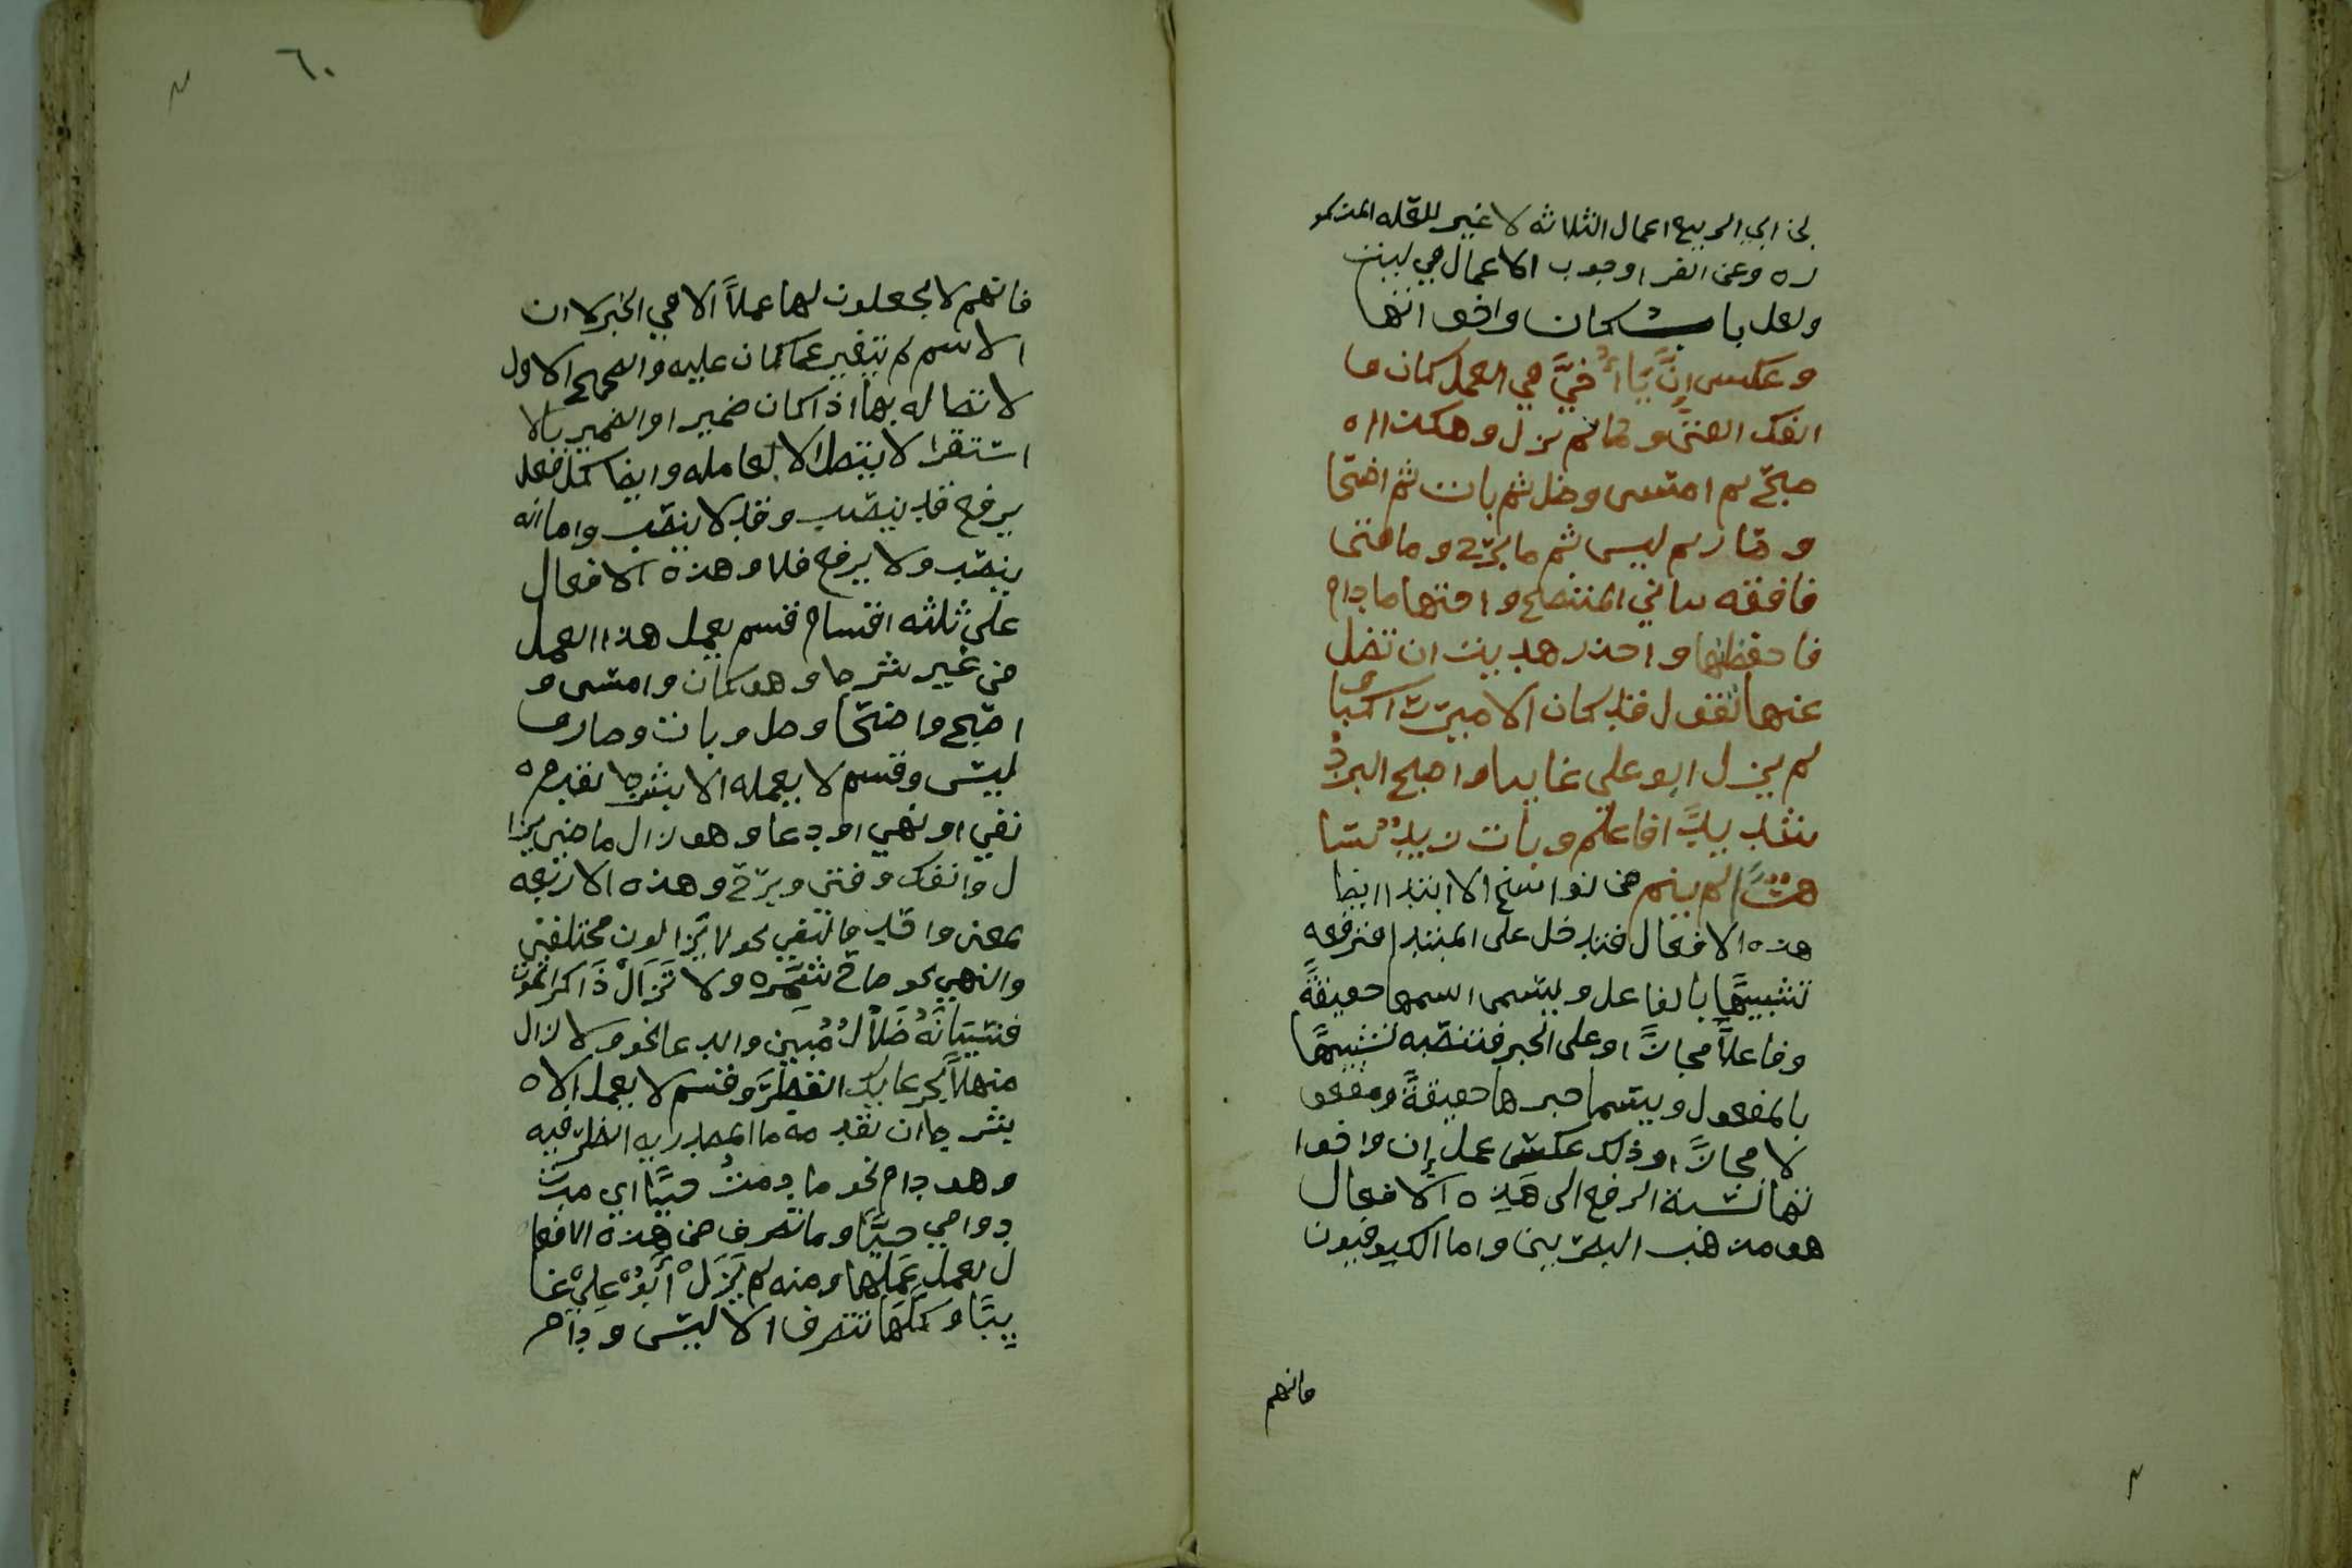 بن ابي الربيع اعمال الثلاثه لا غير للقله المذكو
ره وعن الفرا وجوب الاعمال في ليت
ولعل باب كان واخواتها
وعكس إنّ يا أُخيَّ في العمل كان وما
انفك الفتى ولم يزل وهكذا
اصبح ثم امسى وظل ثم بات ثم اضحا
وصار ثم ليس ثم ما برح وما فتى
فافقه بياني المتضح واختها مادام
فاحفظنها واحذر هديت ان تضل
عنها تقول قد كان الامير راكبا
لم يزل ابو علي غايبا واصبح البردُ
شديدًا فاعلم وبات زيدٌ ساهرًا
لم ينم من نواسخ الابتدا ايضا
هذه الافعال فتدخل على المبتدا فترفعه
تشبيهًا بالفاعل ويسمى اسمها حقيقةً
وفاعلاً مجازًا وعلى الخبر فتنصبه تشبيهًا
بالمفعول ويسما خبرها حقيقةً ومفعو
لا مجازًا وذلك عكس عمل إن واخوا
تها نسبة الرفع الى هذه الافعال
هو مذهب البصريين واما الكوفيون
فانهم
٦٠
فانهم لا يجعلون لها عملاً الا في الخبر لان
الاسم لم يتغير عما كان عليه والصحيح الاول
لاتصاله بها اذا كان ضميرا والضمير بالا
ستقرا لا يتصل الا بعامله وايضا كل فعل
يرفع قد ينصب وقد لا ينصب واما انه
ينصب ولا يرفع فلا وهذه الافعال
على ثلثه اقسام قسم يعمل هذا العمل
من غير شرط وهو كان وامسى و
اصبح واضحا وظل وبات وصار و
ليس وقسم لا يعمله الا بشرط تقدم
نفي او نهي او دعا وهو زال ماضي يزا
ل وانفك وفتى وبرح وهذه الاربعه
بمعنى واحد فالنفي نحو لا يَزالون مختلفين
والنهي نحو صاح شمّر ولا تَزَالْ ذَاكر الموت
فنسيانُهُ ضَلاَلٌ مُبين والدعا نحو ولا زال
منهلاً بجرعايك القطرُ وقسم لا يعمل الا
بشرط ان تقدمه ما المصدريه الظرفيه
وهو دام نحو ما دمتُ حيًّا اي مدة
دوامي حيًّا وما تصرف من هذه الافعا
ل يعمل عَمَلَها ومنه لم يَزَلْ أَبُوْ عَلِيْ غا
يبًا وكلها تتصرف الا ليس ودام